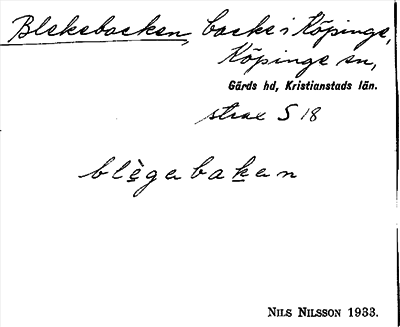 Blekebacken, backe i Köpinge,
Köpinge sn,
Gärds hd, Kristianstads län.
strax S 18
blègabakan
NILS NILSSON 1933.